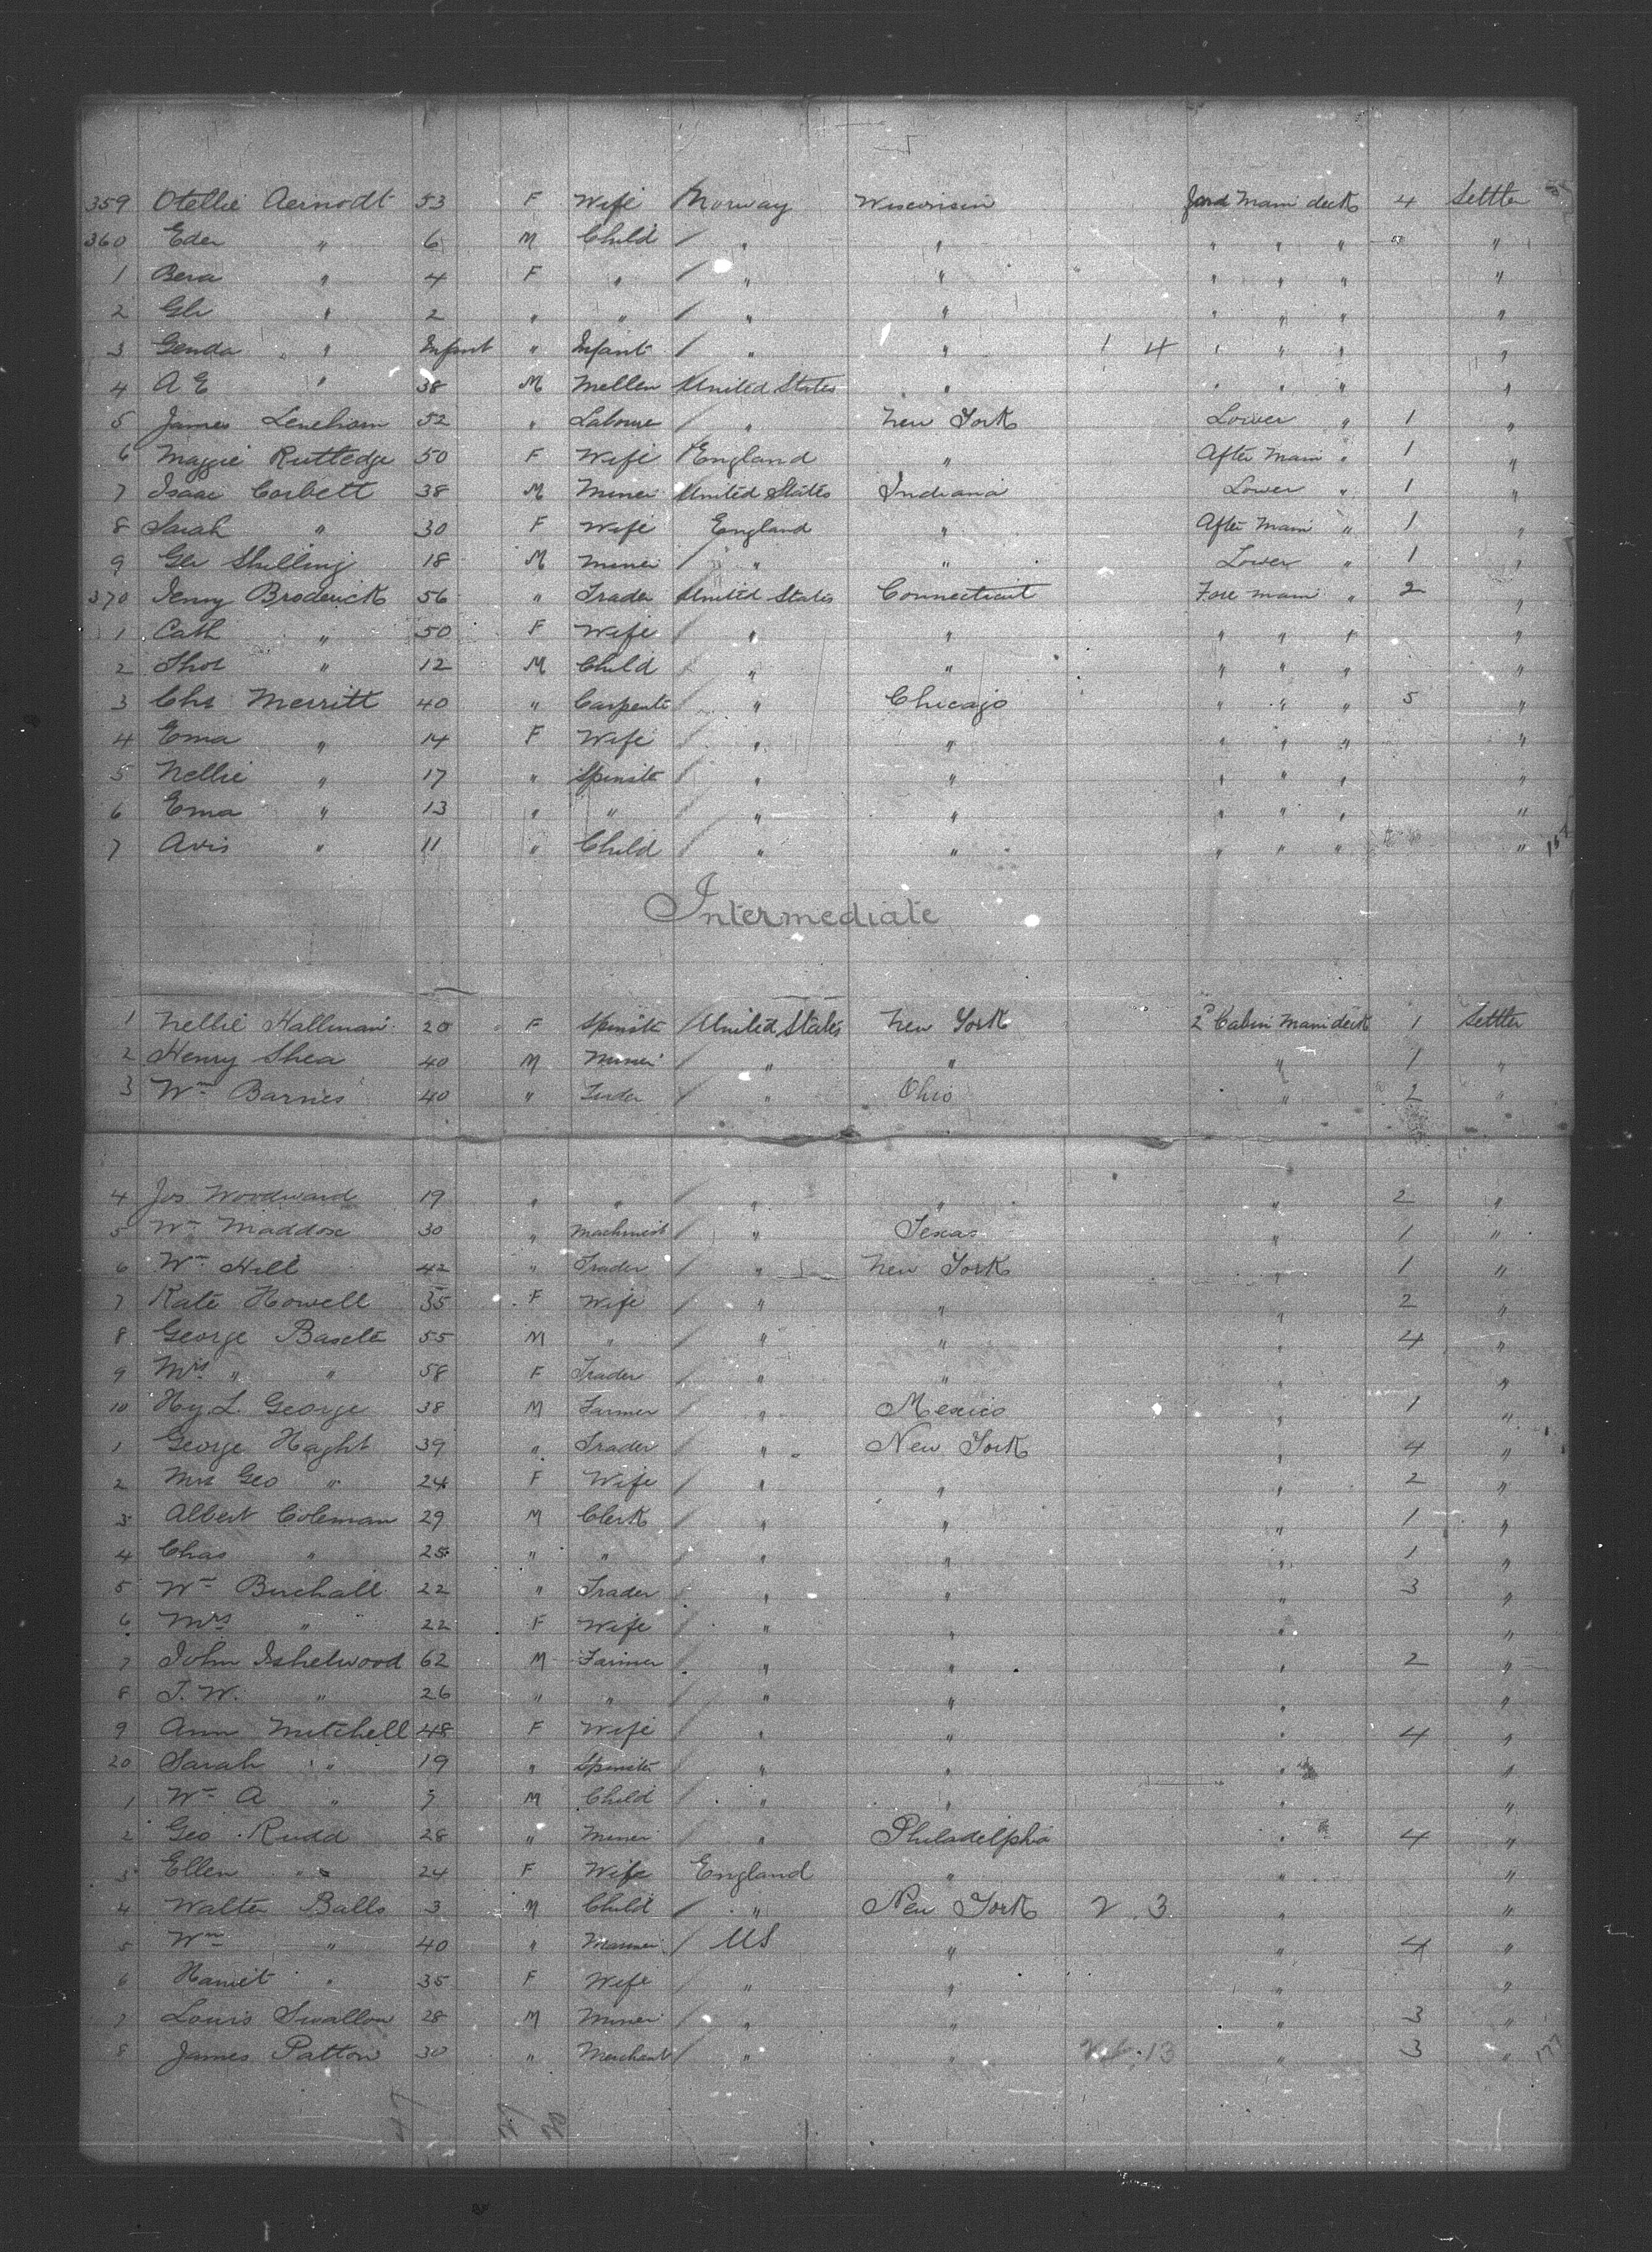 359 Otellie Aernodt 53 F Wife Norway Wisconsin Ford Main deck 4 Settler
360 Eder " 6 M Child " " " " " " "
1 Bera " 4 F " " " " " " "
2 Glr " 2 " " " " " " " "
3 Genda " Infant " Infant " " 1 4 " " " "
4 A E " 38 M Mellen United States " " " " "
5 James Leneham 52 " Laboure " New York Lower " 1 "
6 Maggie Rutledge 50 F Wife England " After Main " 1 "
7 Isaac Corbett 38 M Miner United States Indiana Lower " 1 "
8 Sarah " 30 F Wife England " After Main " 1 "
9 Geo Shilling 18 M Miner " " Lower " 1 "
370 Jenny Broderick 56 " Trader United States Connecticut Fore main " 2 "
1 Cath " 50 F Wife " " " " " "
2 Thos " 12 M Child " " " " " "
3 Chs Merritt 40 " Carpente " Chicago " " " 5 "
4 Ema " 14 F Wife " " " " " "
5 Nellie " 17 " Spinste " " " " " "
6 Ema " 13 " " " " " " " "
7 Avis " 11 " Child " " " " " "
Intermediate
1 Nellie Hallman 20 F Spinste United States New York 2° Cabin Main deck 1 Settler
2 Henry Shea 40 M Miner " " " 1 "
3 Wm Barnes 40 " " Ohio " 2 "
4 Jos Woodward 19 " " " " " 2 "
5 Wm Maddox 30 " Machinist " Texas " 1 "
6 Wm Hill 42 " Trader " New York " 1 "
7 Kate Howell 35 F Wife " " " 2 "
8 George Baselt 55 M " " " " 4 "
9 Mrs " " 58 F Trader " " " "
10 Hy. L. George 38 M Farmer " Mexico " 1 "
1 George Haght 39 " Trader " New York " 4 "
2 Mrs Geo " 24 F Wife " " " 2 "
3 Albert Coleman 29 M Clerk " " " 1 "
4 Chas " 25 " " " " " 1 "
5 Wm Buchall 22 " Trader " " " 3 "
6 Mrs " 22 F Wife " " " "
7 John Ishelwood 62 M Farmer " " " 2 "
8 J. W. " 26 " " " " " "
9 Ann Mitchell 48 F Wife " " " 4 "
20 Sarah " 19 " Spinste " " " "
1 Wm A " M Child " " " "
2 Geo Rudd 28 " Miner " Philadelphia " 4 "
3 Ellen " 24 F Wife England " " "
4 Walter Balls 3 M Child " New York 2 . 3 " "
5 Wm " 40 " US " " 4 "
6 Harriet " 35 F Wife " " " "
7 Louis Swallow 28 M Miner " " " 3 "
8 James Patton 30 " Merchant " " 13 " 3 "